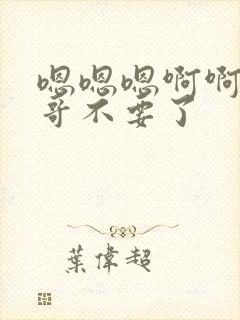 嗯嗯嗯啊啊
哥不要了
葉偉超